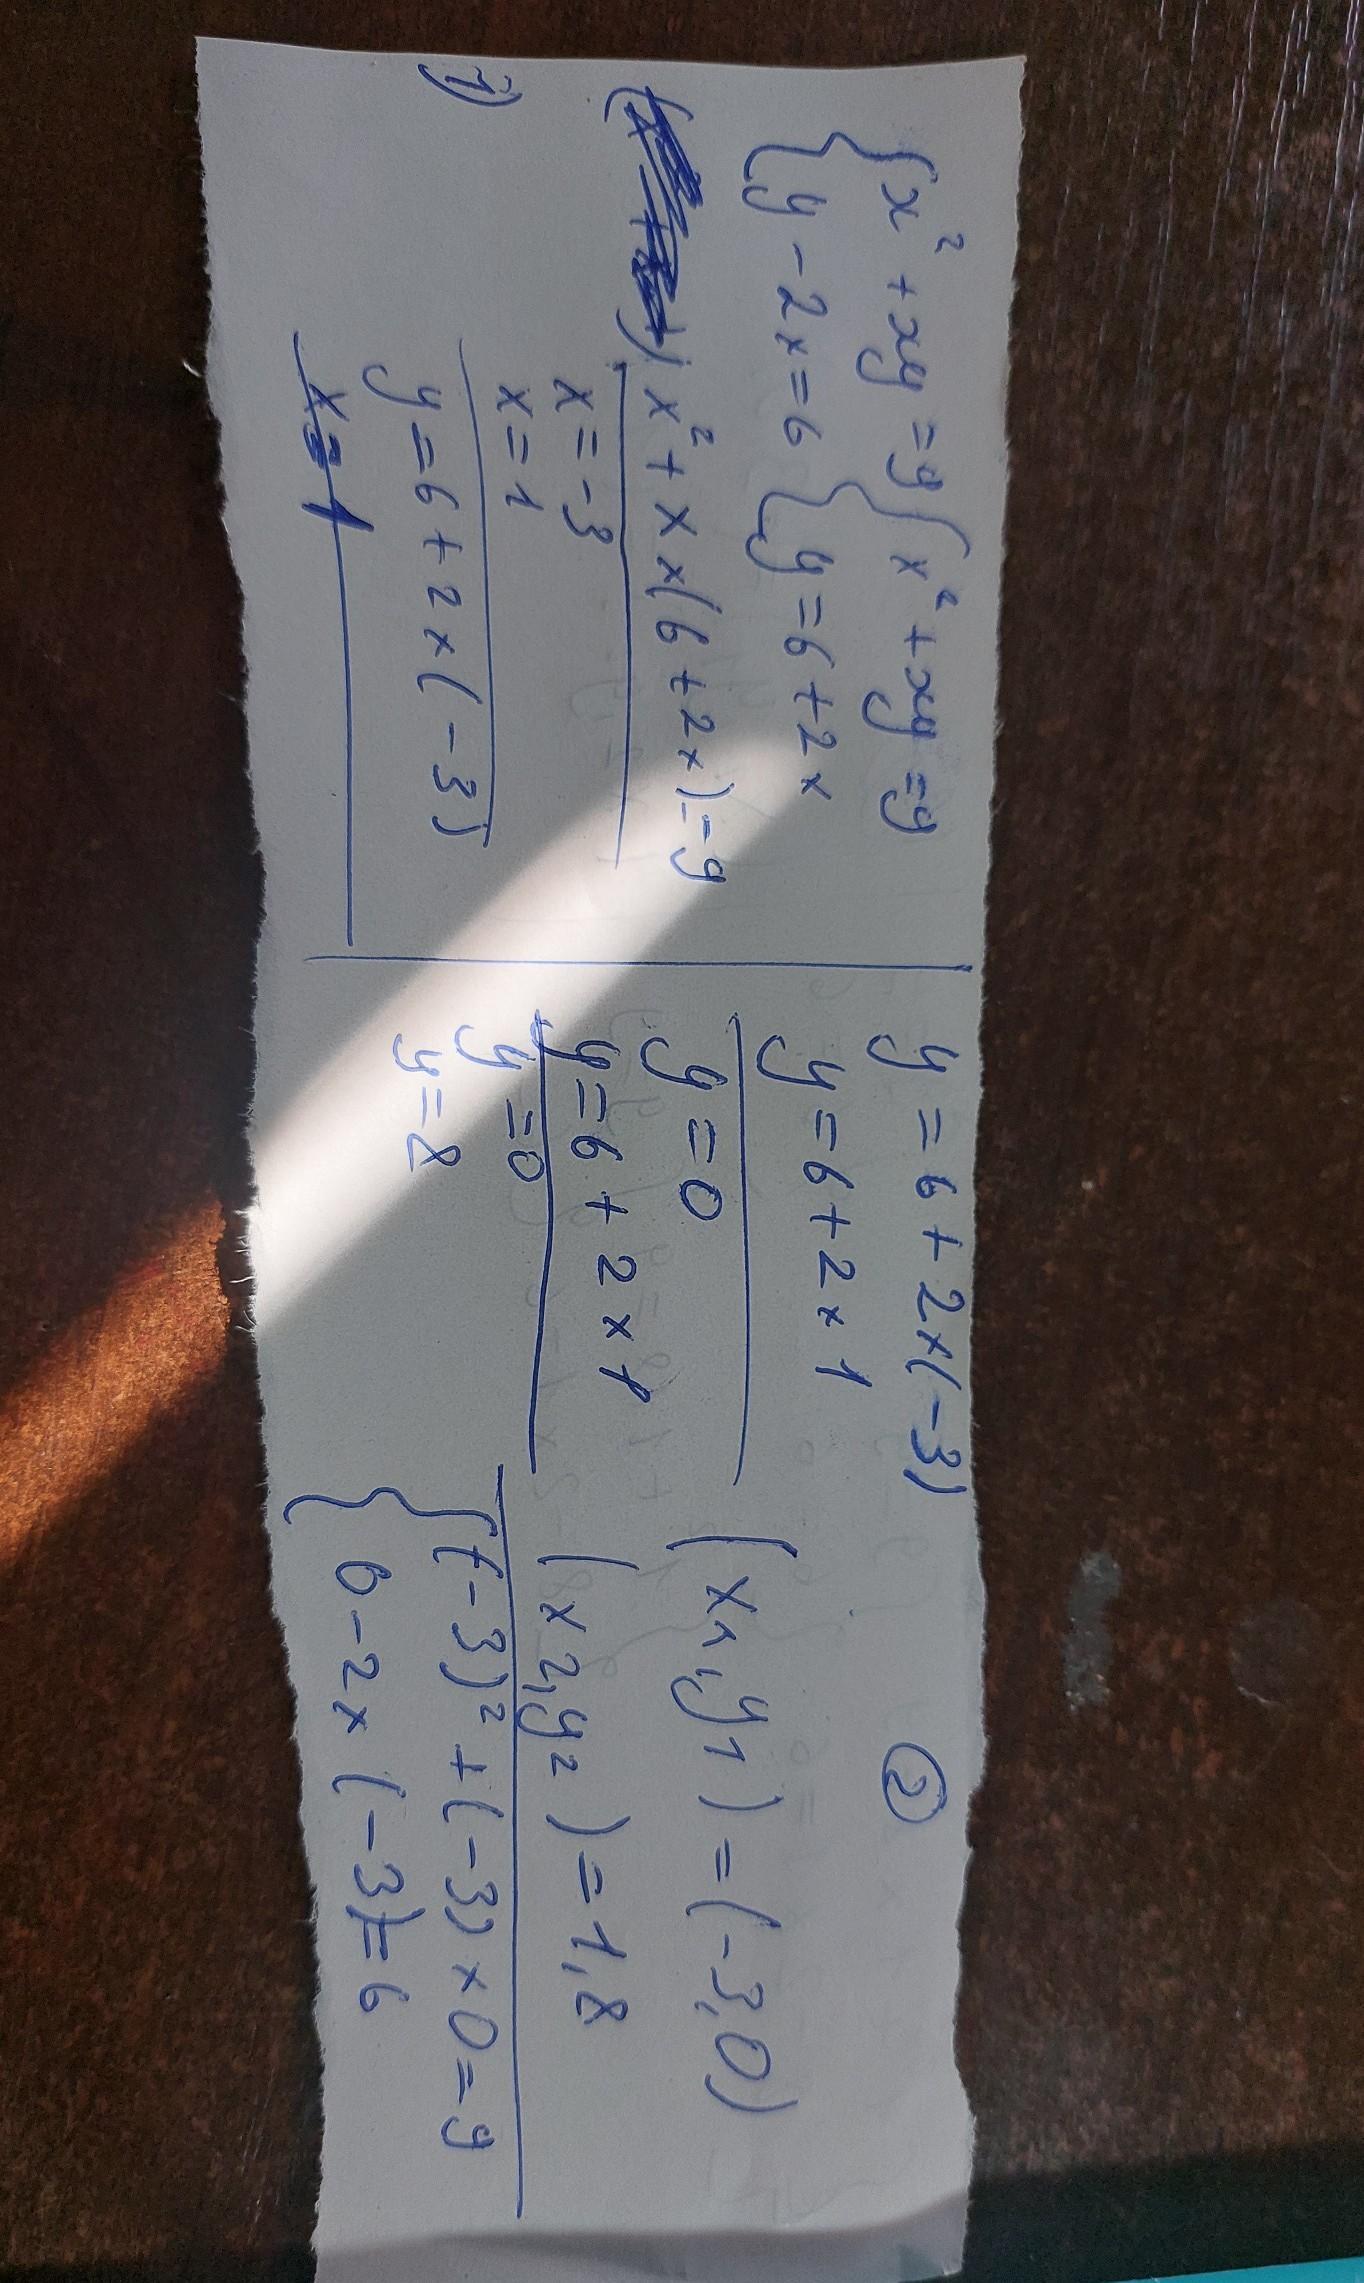 {x² + xy = 9 {x² + xy = 9
{y - 2x = 6 {y = 6 + 2x
x² + x × (6 + 2x) = 9
x = -3
x = 1
y = 6 + 2 × (-3)
1)
y = 6 + 2 × (-3)
y = 6 + 2 × 1
y = 0
y = 6 + 2 × 1
y = 0
y = 8
2
(x1, y1) = (-3, 0)
(x2, y2) = 1, 8
{(-3)² + (-3) × 0 = 9
{0 - 2 × (-3) = 6